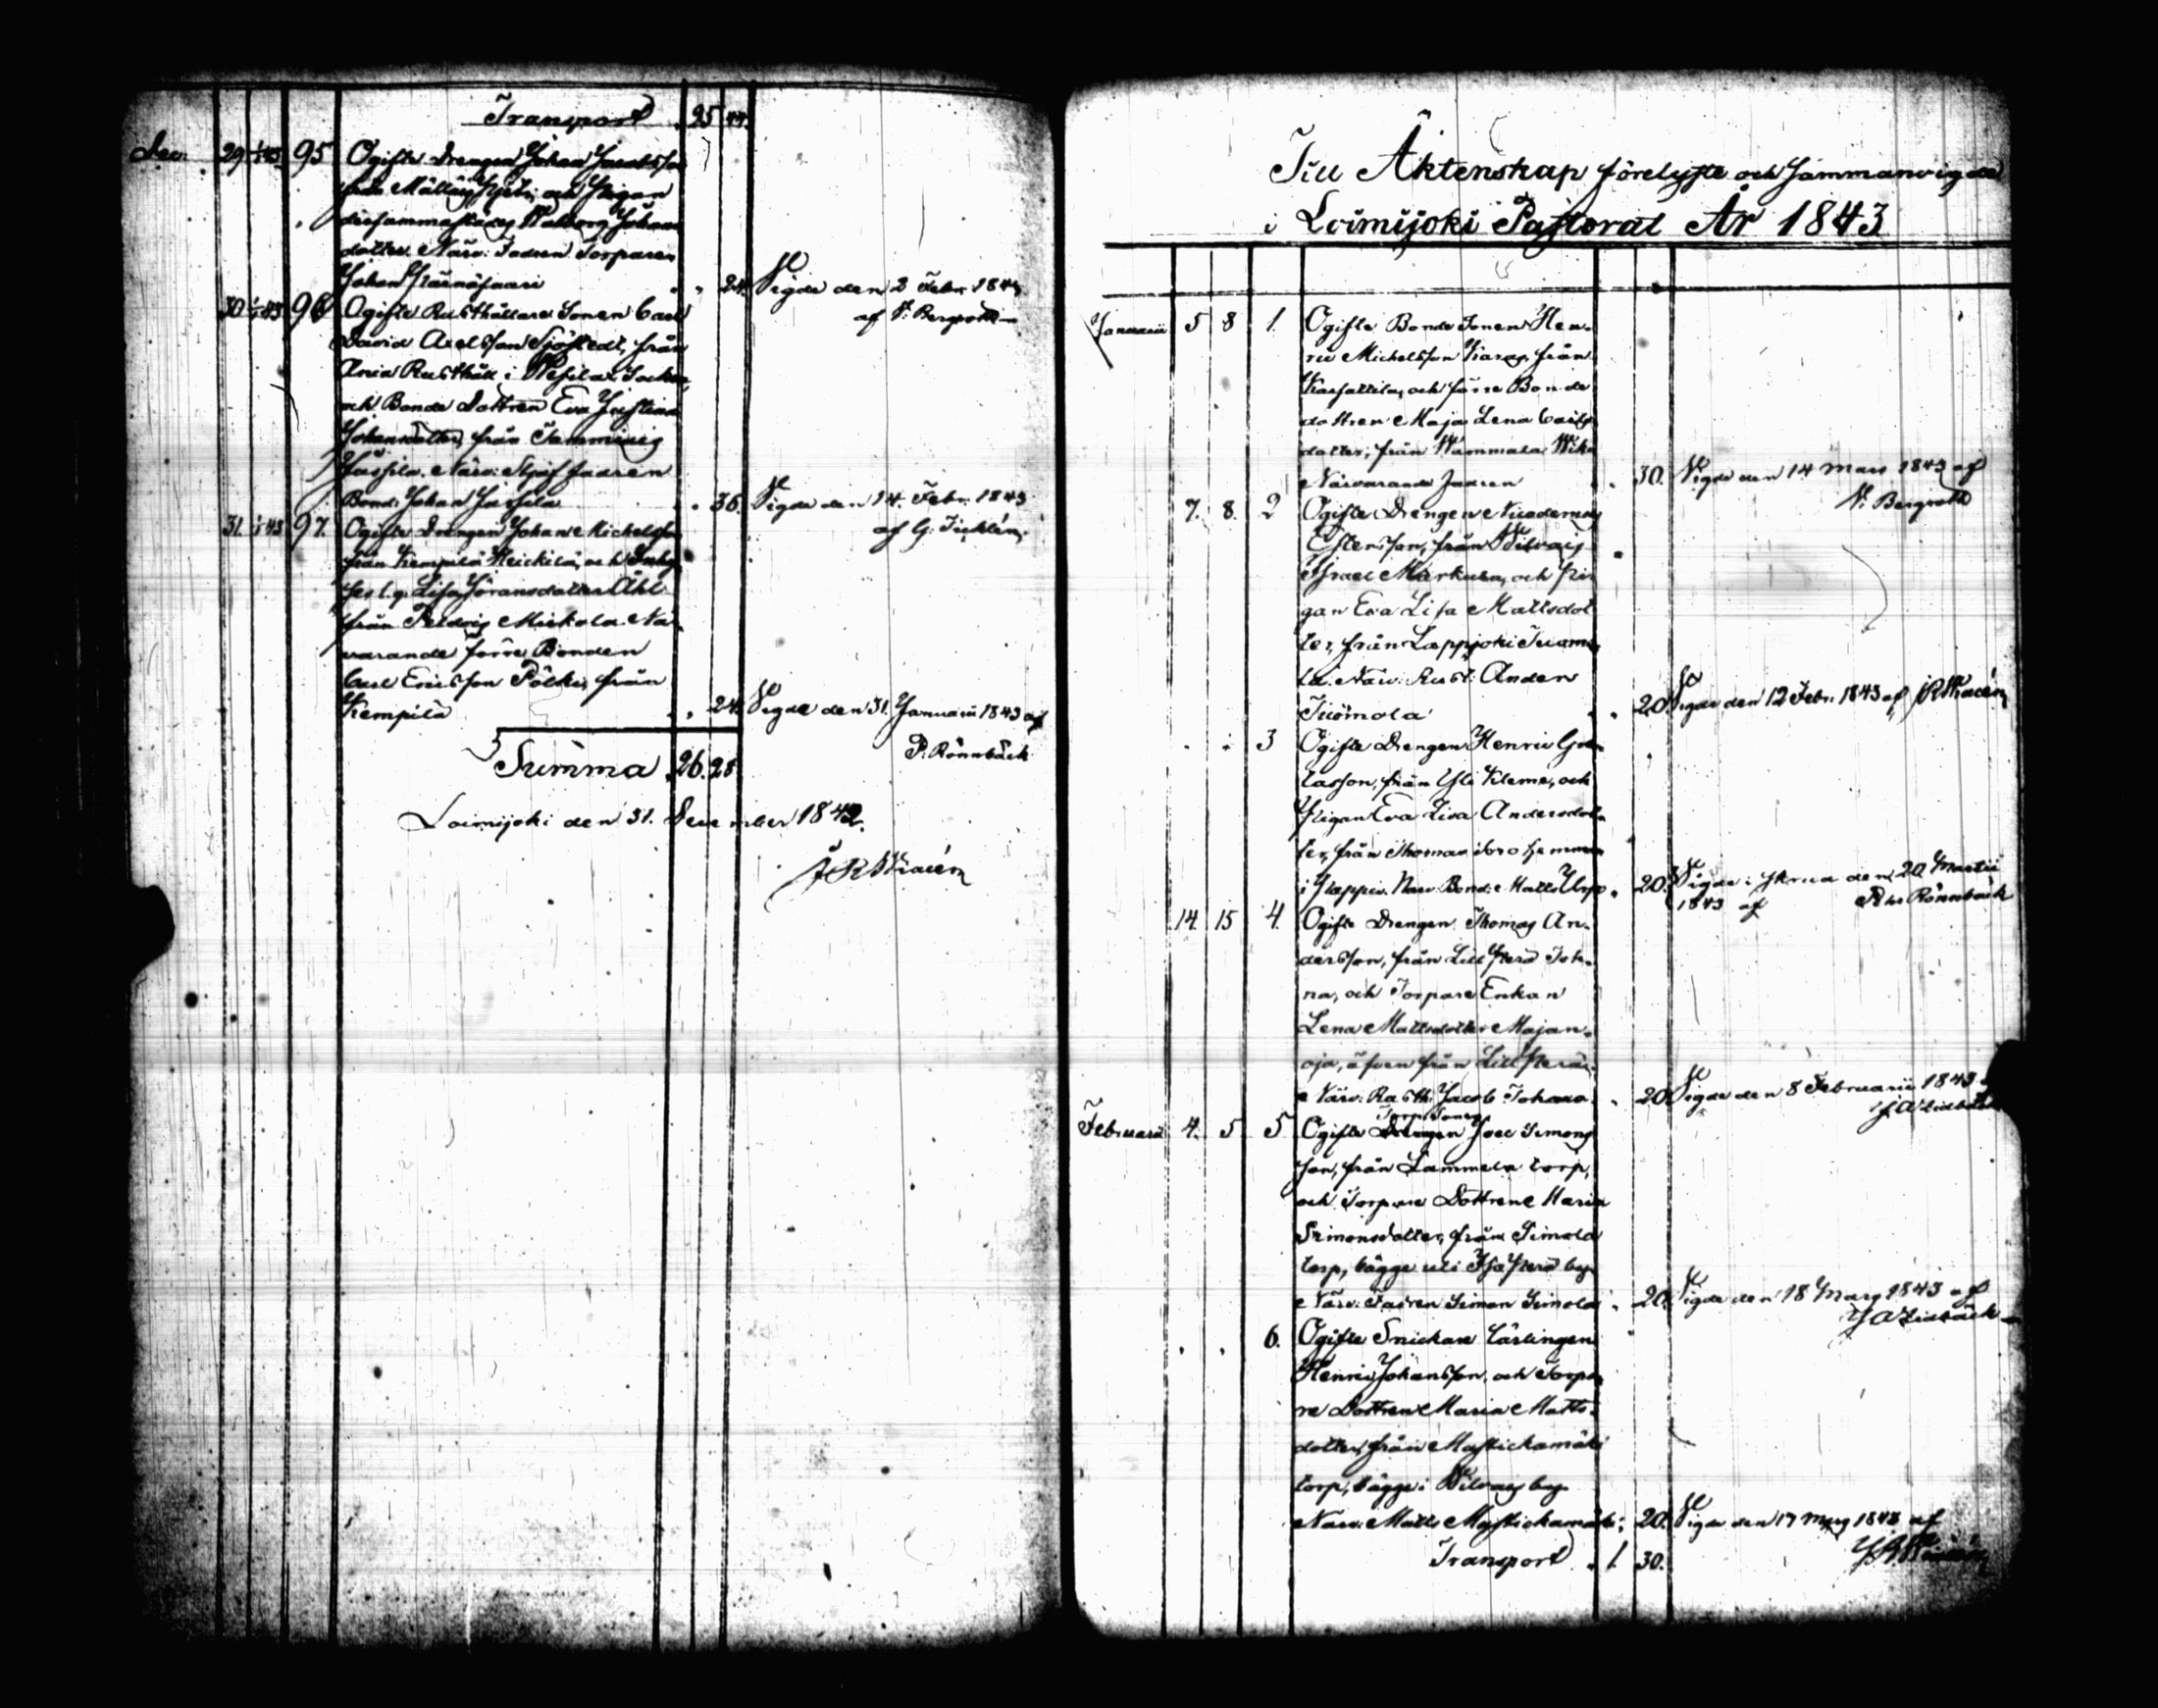 Transport 25 44.
Dec. 29 1/1 43 95 Ogifte Drengen Johan Jacobsson
från Mälläis och Pigan
dersammastädes Walborg Johans
dotter. Närv: Fadren Torparen
Johan . . 24. Vigde den 2 Febr. 1843
af V. Bergroth
30 1/1 43 96 Ogifte Rusthållare Sonen Carl
David Axelsson Sjöstedt, från
Ania Rusthåll i Wesilax Socken,
och Bonde Dottren Eva Justina
Johansdotter, från Tammiais
Jussila. Närv: Stjuffadren
Bond: Johan Jussila . 36. Vigde den 14. Febr. 1843
af G. Ticklén.
31. 1/1 43 97. Ogifte Drengen Johan Michelsson
från Kempilä Heickilä, och
Lisa Göransdotter Åhl
från Peldois Mickola. När
varande förre Bonden
Carl Ericsson Pölkki, från
Kempilä . , 24. Vigde den 31. Januarii 1843 af
P. Rönnbäck
Summa 26. 28
Loimijoki den 31. December 1842.
Till Äktenskap förelyste och Sammanvigde
i Loimijoki Pastorat År 1843
Januarii 5 8 1. Ogifte Bonde Sonen Hen-
ric Michelsson Karp, från
Karsattila, och förre Bonde
dottren Maja Lena Carls
dotter, från Wammala Wika
Närvarande Fadren . 30. Vigde den 14 Mars 1843 af
V. Bergroth
7. 8. 2 Ogifte Drengen Nicodemus
från Wilvais
Israel Markula, och Pi-
gan Eva Lisa Mattsdot
ter, från Lappjoki Tuomo
la. Närv: Rust: Anders
Tuomola . . 20. Vigde den 12 Febr. 1843 af
. . 3 Ogifte Drengen Henric Gab-
Yli Kleme, och
Pigan Eva Lisa Andersdot-
ter, från Thomas
i Närv: Bond: Matts Urpo . 20. Vigde i den 20 Martii
1843 af Rönnbäck
14. 15 4. Ogifte Drengen Thomas An-
dersson, från Lill Perä Toh-
na, och Torpare Enkan
Lena Mattsdotter Majan-
oja, äfven från Lill Perä.
Närv: Rusth: Jacob . 20. Vigde den 8 Februarii 1843
J A Lidbäck
Torp: Sonen
Februarii 4. 5 5 Ogifte Drengen Joel Simons
son, från Lammela torp,
och Torpare Dottren Maria
Simonsdotter, från Simola
torp, bägge uti Isoperä by
Närv: Fadren Simon Simola . 20. Vigde den 18 Mars 1843 af
J A Lidbäck
. . 6. Ogifte Snickare Lärlingen
Henric Johansson, och Torpa-
re Dottren Maria Matts-
dotter, från Mastickamäki
torp, bägge i Wilvais by
Närv: Matts Mastickamäki . 20. Vigde den 17 Mars 1843 af
Transport . 1. 30.